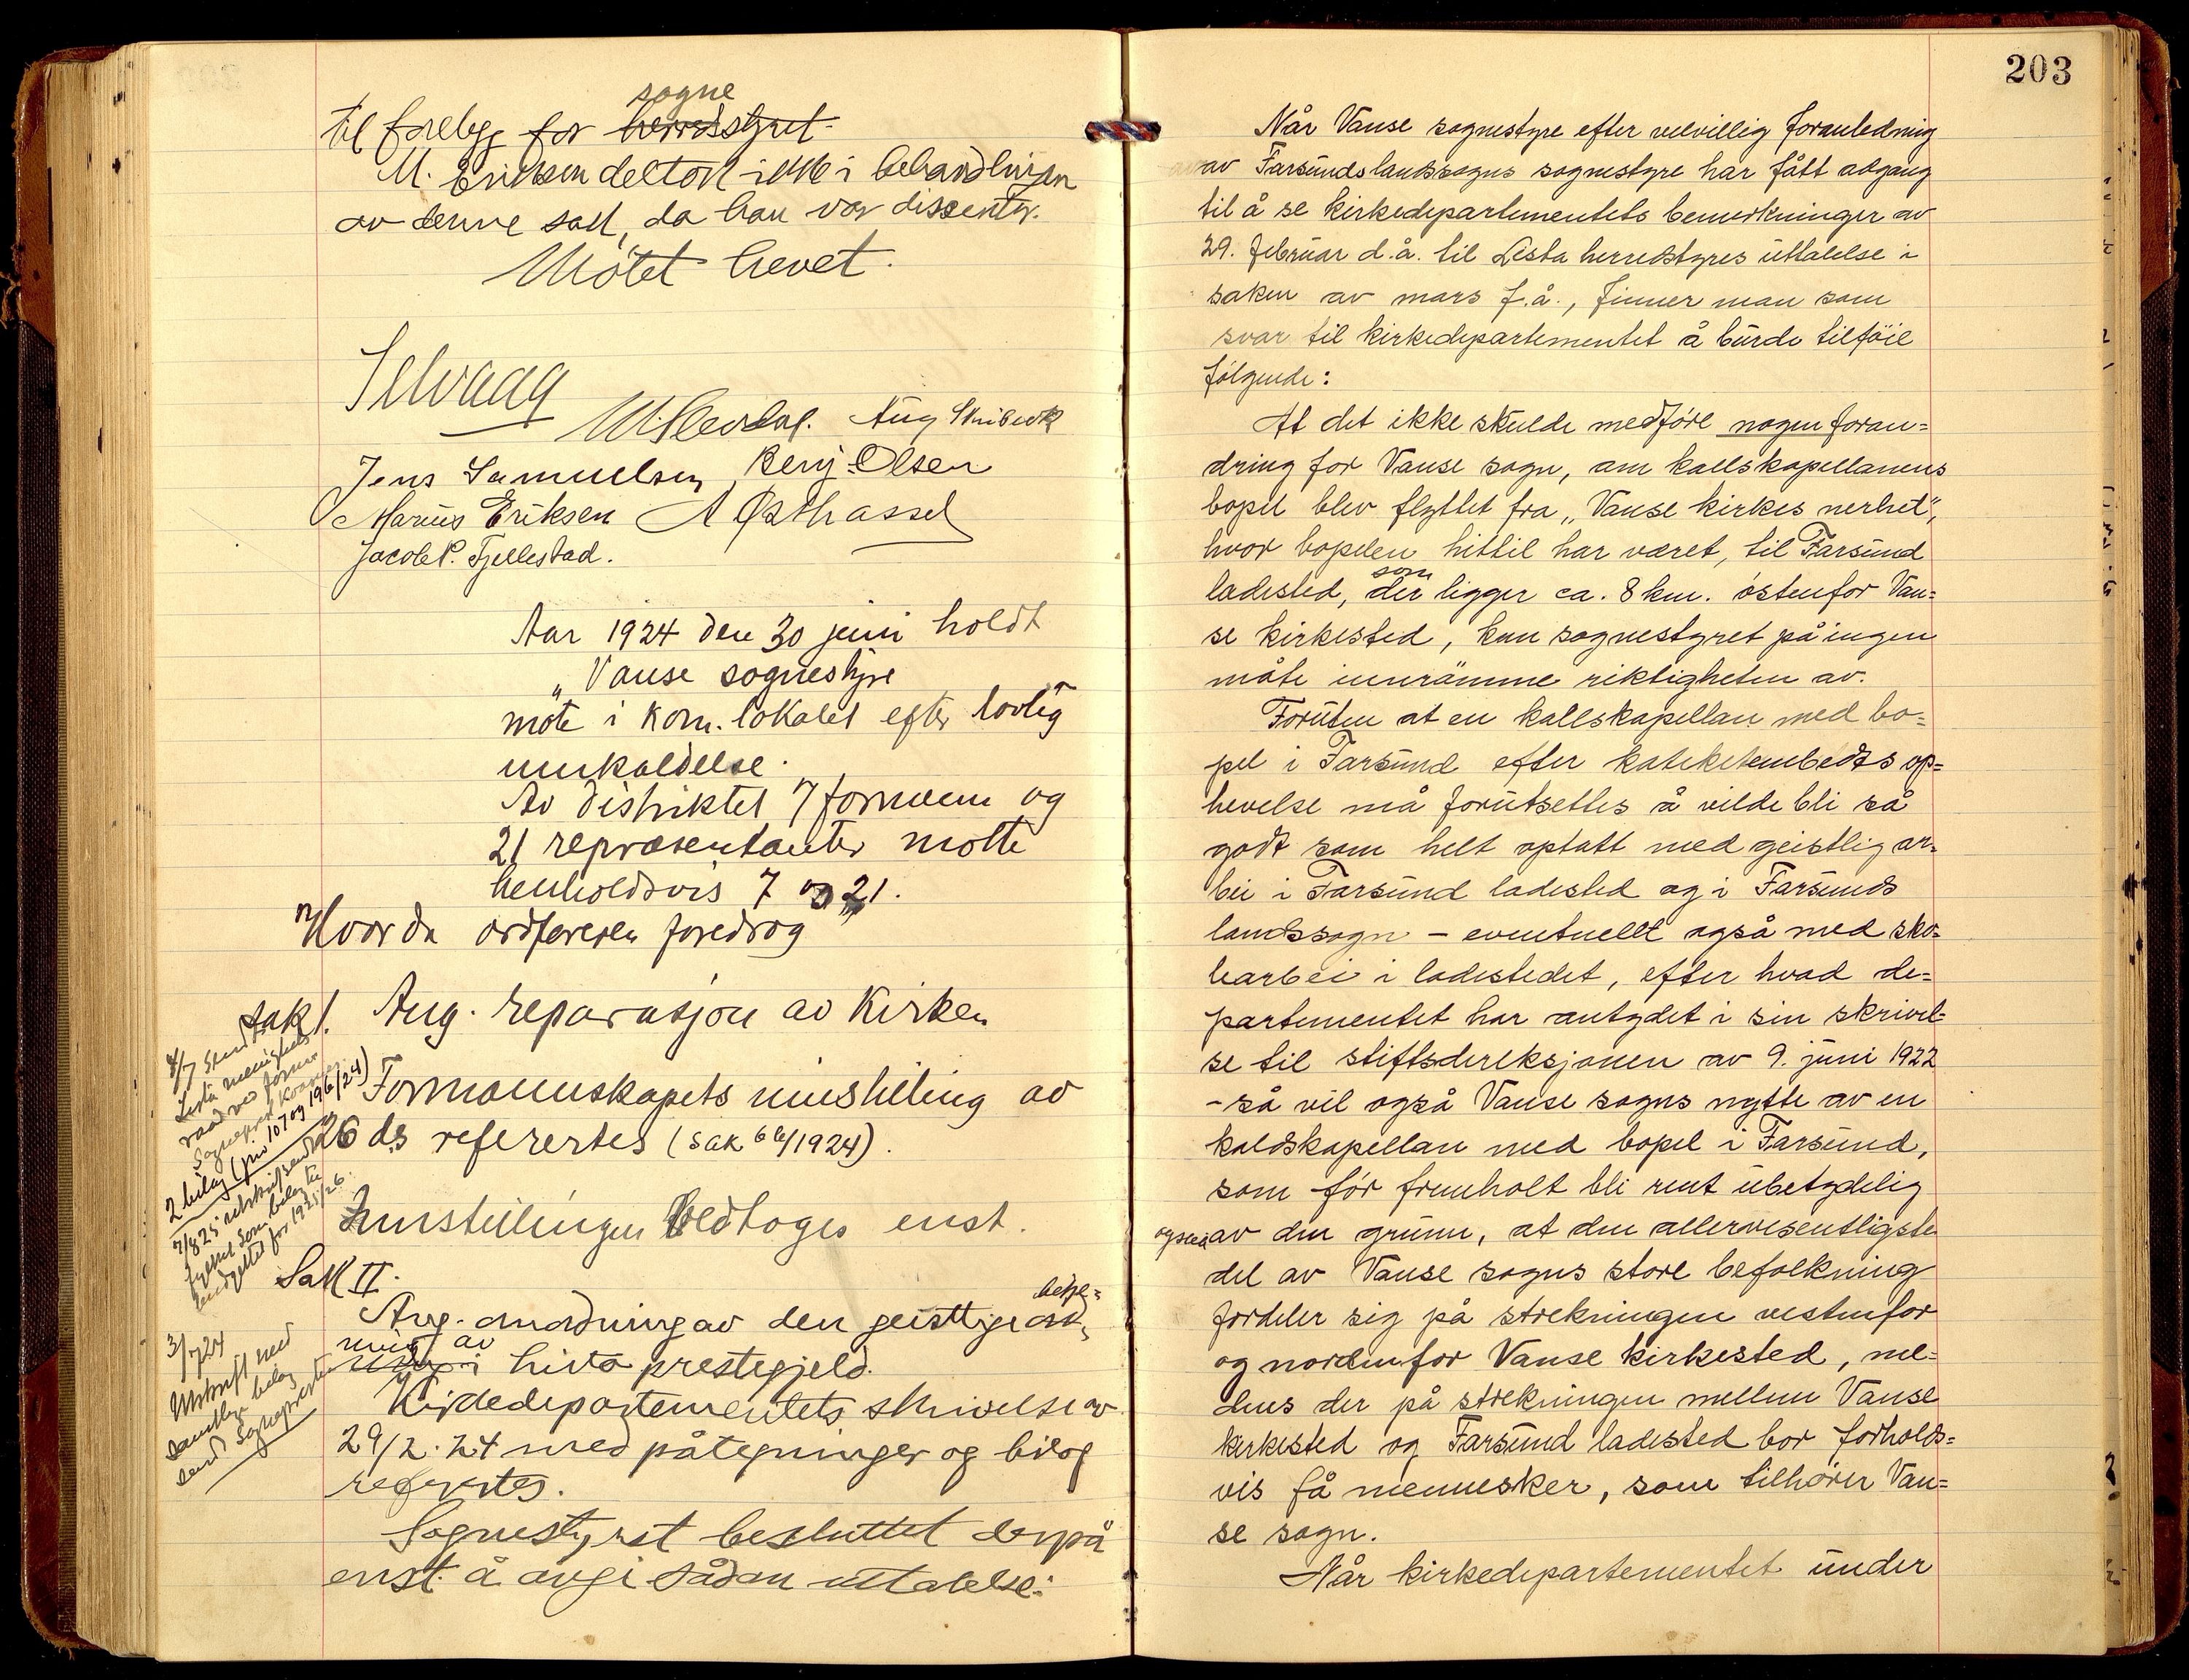 sogne
til forelegg for herredsstyret.
M. Eriksen deltok ikke i behandlingen
av denne sak, da han var dissenter.
Møtet hevet.
Selvaag
Aug Skibeck
Jens Samuelsen Benj. Olsen
Marius Eriksen A Østhassel
Jacob P. Fjellestad.
Aar 1924 den 30 juni holdt
„ Vanse sognestyre
møte i kom. lokalet efter lovlig
innkaldelse.
Av distriktet 7 formenn og
21 representanter møtte
henholdsvis 7 og 21.
Hvorda ordføreren foredrog
Sak 1. Ang. reparasjon av Kirken
4/7 Sendt
Lista menighets
raad ved form
Sogneprest
2 bilag (jnr 107 og 196/24)
Formannskapets innstilling av
26 ds refertes (sak 66/1924).
7/8 25 utskrift sendt
fylket som bilag til
budgettet for 1925/26.
Innstillingen vedtoges enst.
Sak II.
betje=
Ang. anordning av den geistlige
ning av
i Lista prestegjeld.
3/7 24
Utskrift med
samtlige bilag
sendt Sognepresten
Kirkedepartementets skrivelse av
29/2. 24 med påtegninger og bilag
refertes.
Sognestyret besluttet derpå
enst. å avgi sådan uttalelse:
203
Når Vanse sognestyre efter velvillig foranledning
av Farsunds landssogns sognestyre har fått adgang
til å se kirkedepartementets bemerkninger av
29. februar d.å. til Lista herredstyres uttalelse i
saken av mars f.å., finner man som
svar til kirkedepartementet å burde tilføie
følgende:
At det ikke skulde medføre nogen foran=
dring for Vanse sogn, om kallskapellanens
bopel blev flyttet fra „Vanse kirkes nerhet",
hvor bopelen hittil har været, til Farsund
som
ladested, der ligger ca. 8 km. østenfor Van=
se kirkested, kan sognestyret på ingen
måte innrømme riktigheten av.
Foruten at en kallskapellan med bo=
pel i Farsund efter kateketembedets op=
hevelse må forutsettes å vilde bli så
godt som helt optatt med geistlig ar=
bei i Farsund ladested og i Farsunds
landssogn – eventuellt også med sko=
learbei i ladestedet, efter hvad de=
partementet har antydet i sin skrivel=
se til stiftsdireksjonen av 9. juni 1922
– så vil også Vanse sogns nytte av en
kaldskapellan med bopel i Farsund,
som før fremholt bli rent ubetydelig
ogsaa av den grunn, at den allervesentligste
del av Vanse sogns store befolkning
fordeler sig på strekningen vestenfor
og nordenfor Vanse kirkested, me=
dens der på strekningen mellem Vanse
kirkested og Farsund ladested bor forholds=
vis få mennesker, som tilhører Van=
se sogn.
Når kirkedepartementet under